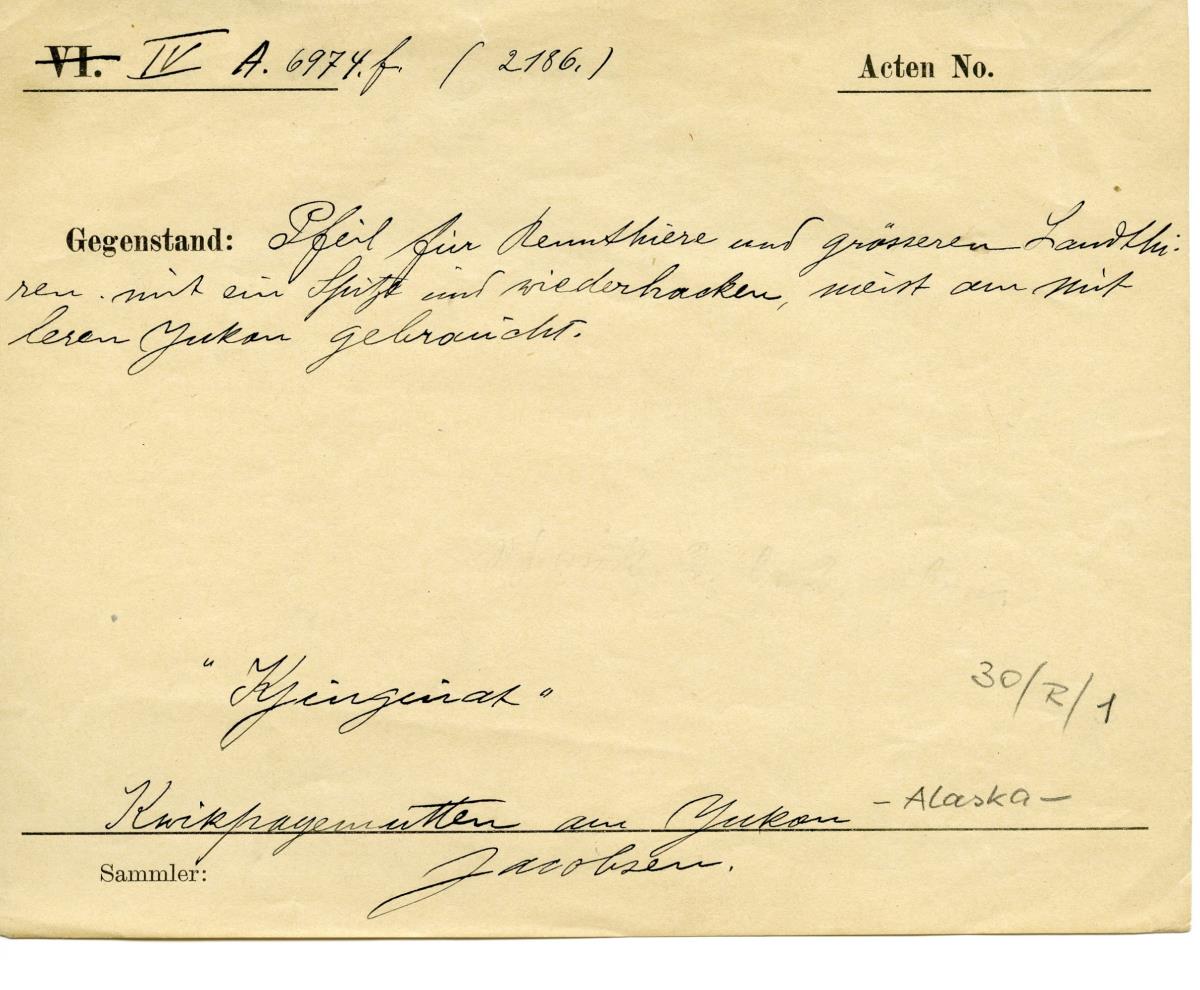 VI. IV A. 6974.f. (2186.) Acten No.
Gegenstand: Pfeil für Rennthiere und grösseren Landthi-
ren. mit ein Spitze und wiederhacken, meist am mit
leren Yukon gebraucht.
"Kjinginat"
30/R/1
Kwikpagemutten am Yukon - Alaska -
Sammler: Jacobsen.